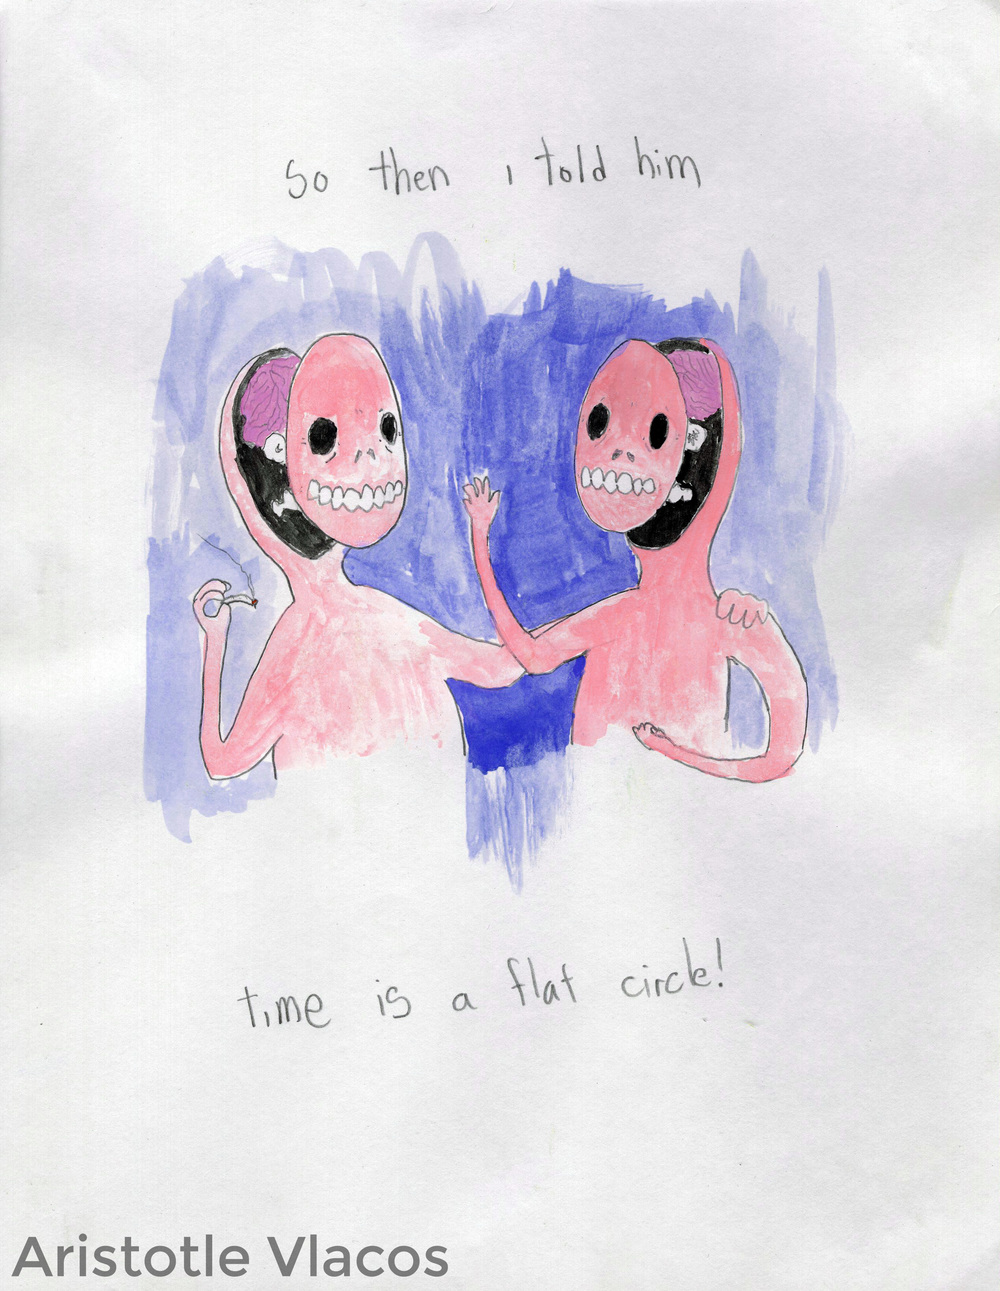 So then i told him
time is a flat circle!
Aristotle Vlacos